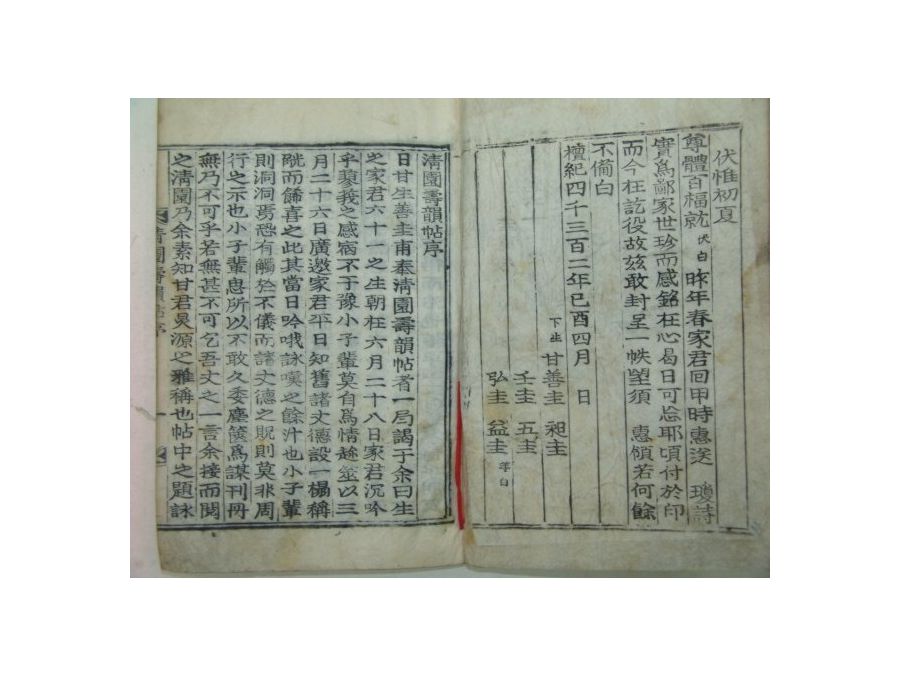 伏惟初夏
尊體百福就 伏白 昨年春家君回甲時惠送 瓊詩
實爲鄙家世珍而感銘在心曷日可忘耶頃付於印
而今在訖役故玆敢封呈一帙望須 惠領若何餘
不備白
檀紀四千三百二年己酉四月 日
下生 甘善圭 昶圭
壬圭 五圭
弘圭 益圭 等白
淸園壽韻帖序
日甘生善圭甫奉淸園壽韻帖者一局謁于余曰生
之家君六十一之生朝在六月二十八日家君沉吟
乎蓼莪之感宿不于豫小子輩莫自爲情趁筮以三
月二十六日廣邀家君平日知舊諸丈德設一榻稱
觥而餙喜之此其當日吟哦詠嘆之餘汁也小子輩
則洞洞焉恐有觸於不儀而諸丈德之貺則莫非周
行之示也小子輩思所以不敢久委塵篋爲謀刊冊
無乃不可乎若無甚不可乞吾丈之一言余接而閱
之淸園乃余素知甘君昊源之雅稱也帖中之題詠
淸園壽韻帖序 一